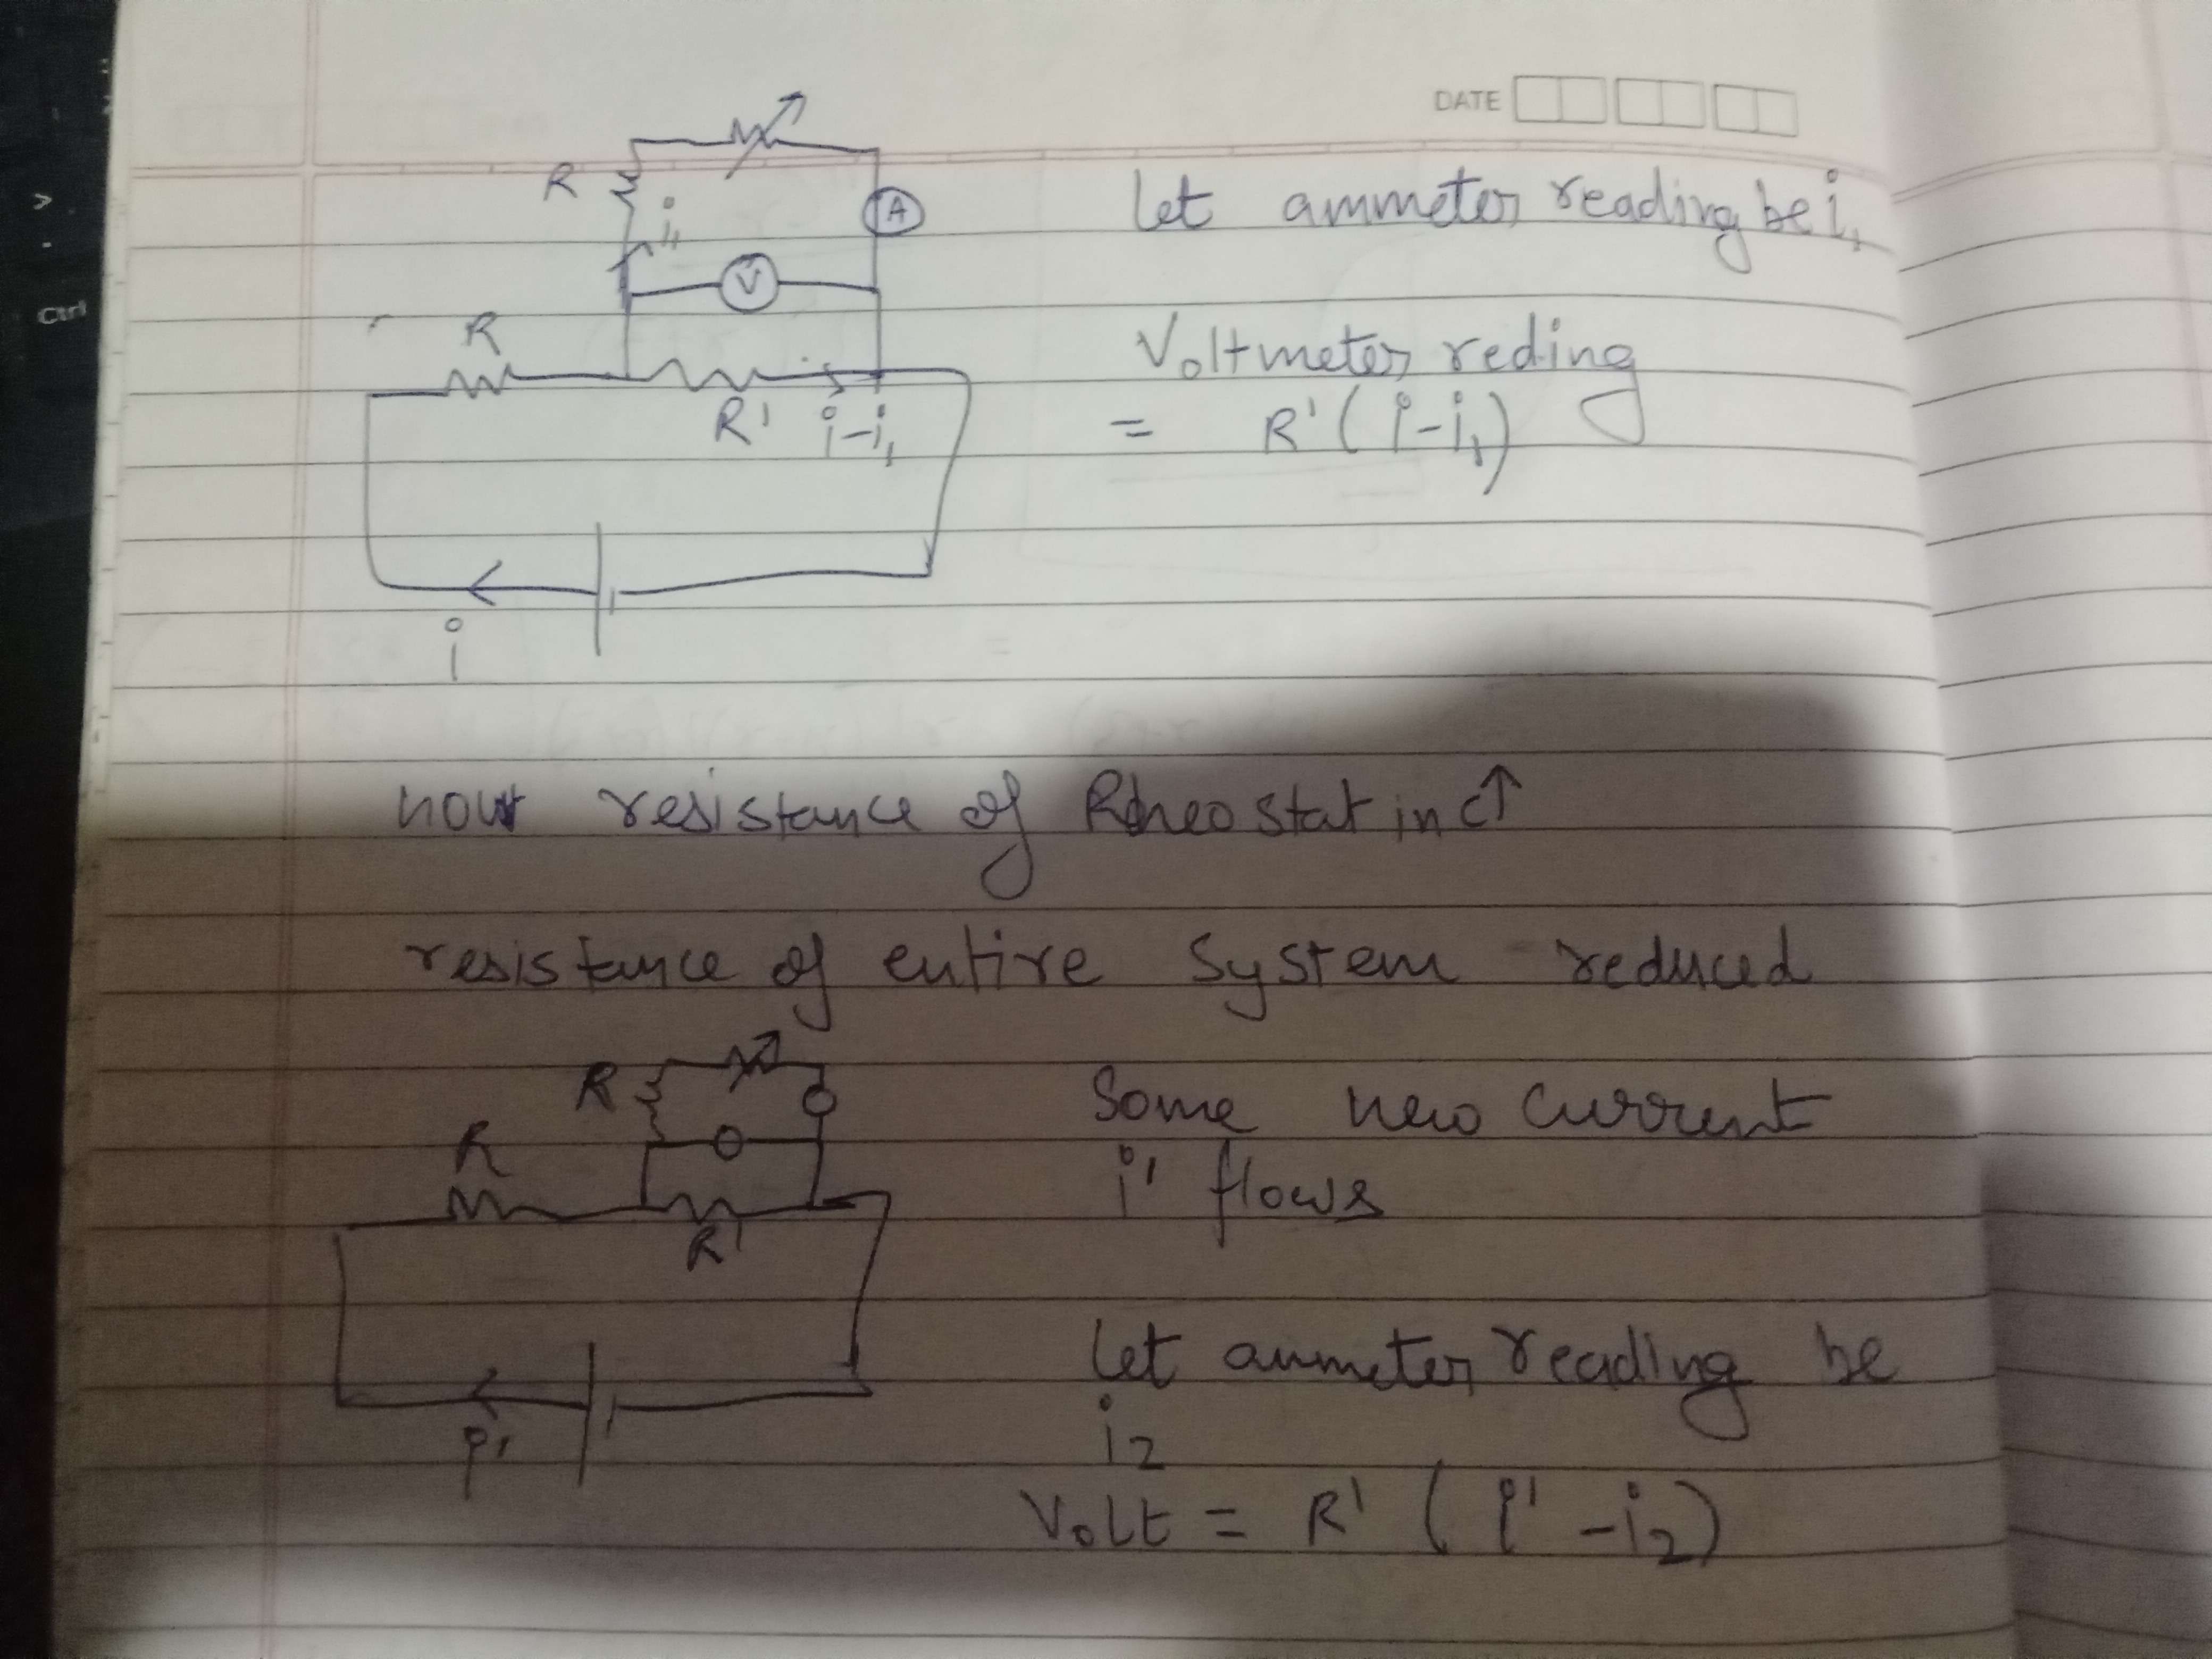 DATE
R
i₁
A
V
Let ammeter reading be i₁
R
R' i-i₁
Voltmeter reding
= R' (i-i₁)
i
Ctrl
now resistance of Rheostat inc↑
resistance of entire system reduced
R
R
R'
Some new current
i' flows
i'
Let ammeter reading be
i₂
Volt = R' (i' -i₂)